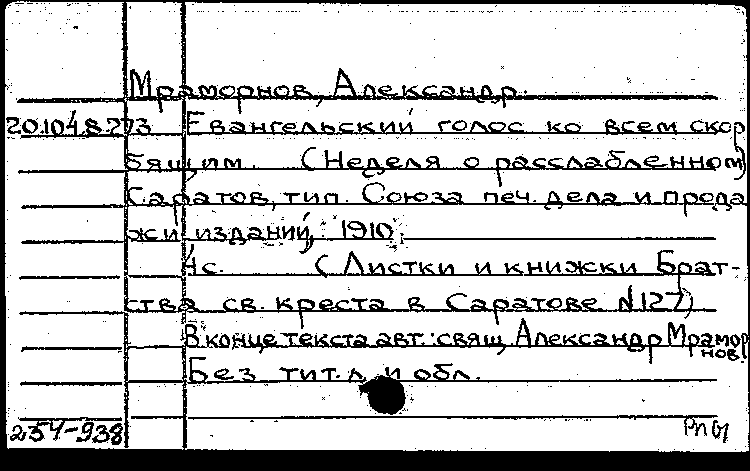 Мраморнов, Александр.
20.104.8.273 Евангельский голос ко всем скор
бящим. (Неделя о расслабленном)
Саратов, тип. Союза печ. дела и прода
жи изданий, 1910.
4с. (Листки и книжки Брат-
ства св. креста в Саратове N127)
В конце текста авт.: свящ. Александр Мрамор
нов.
Без тит. л. и обл.
254-938